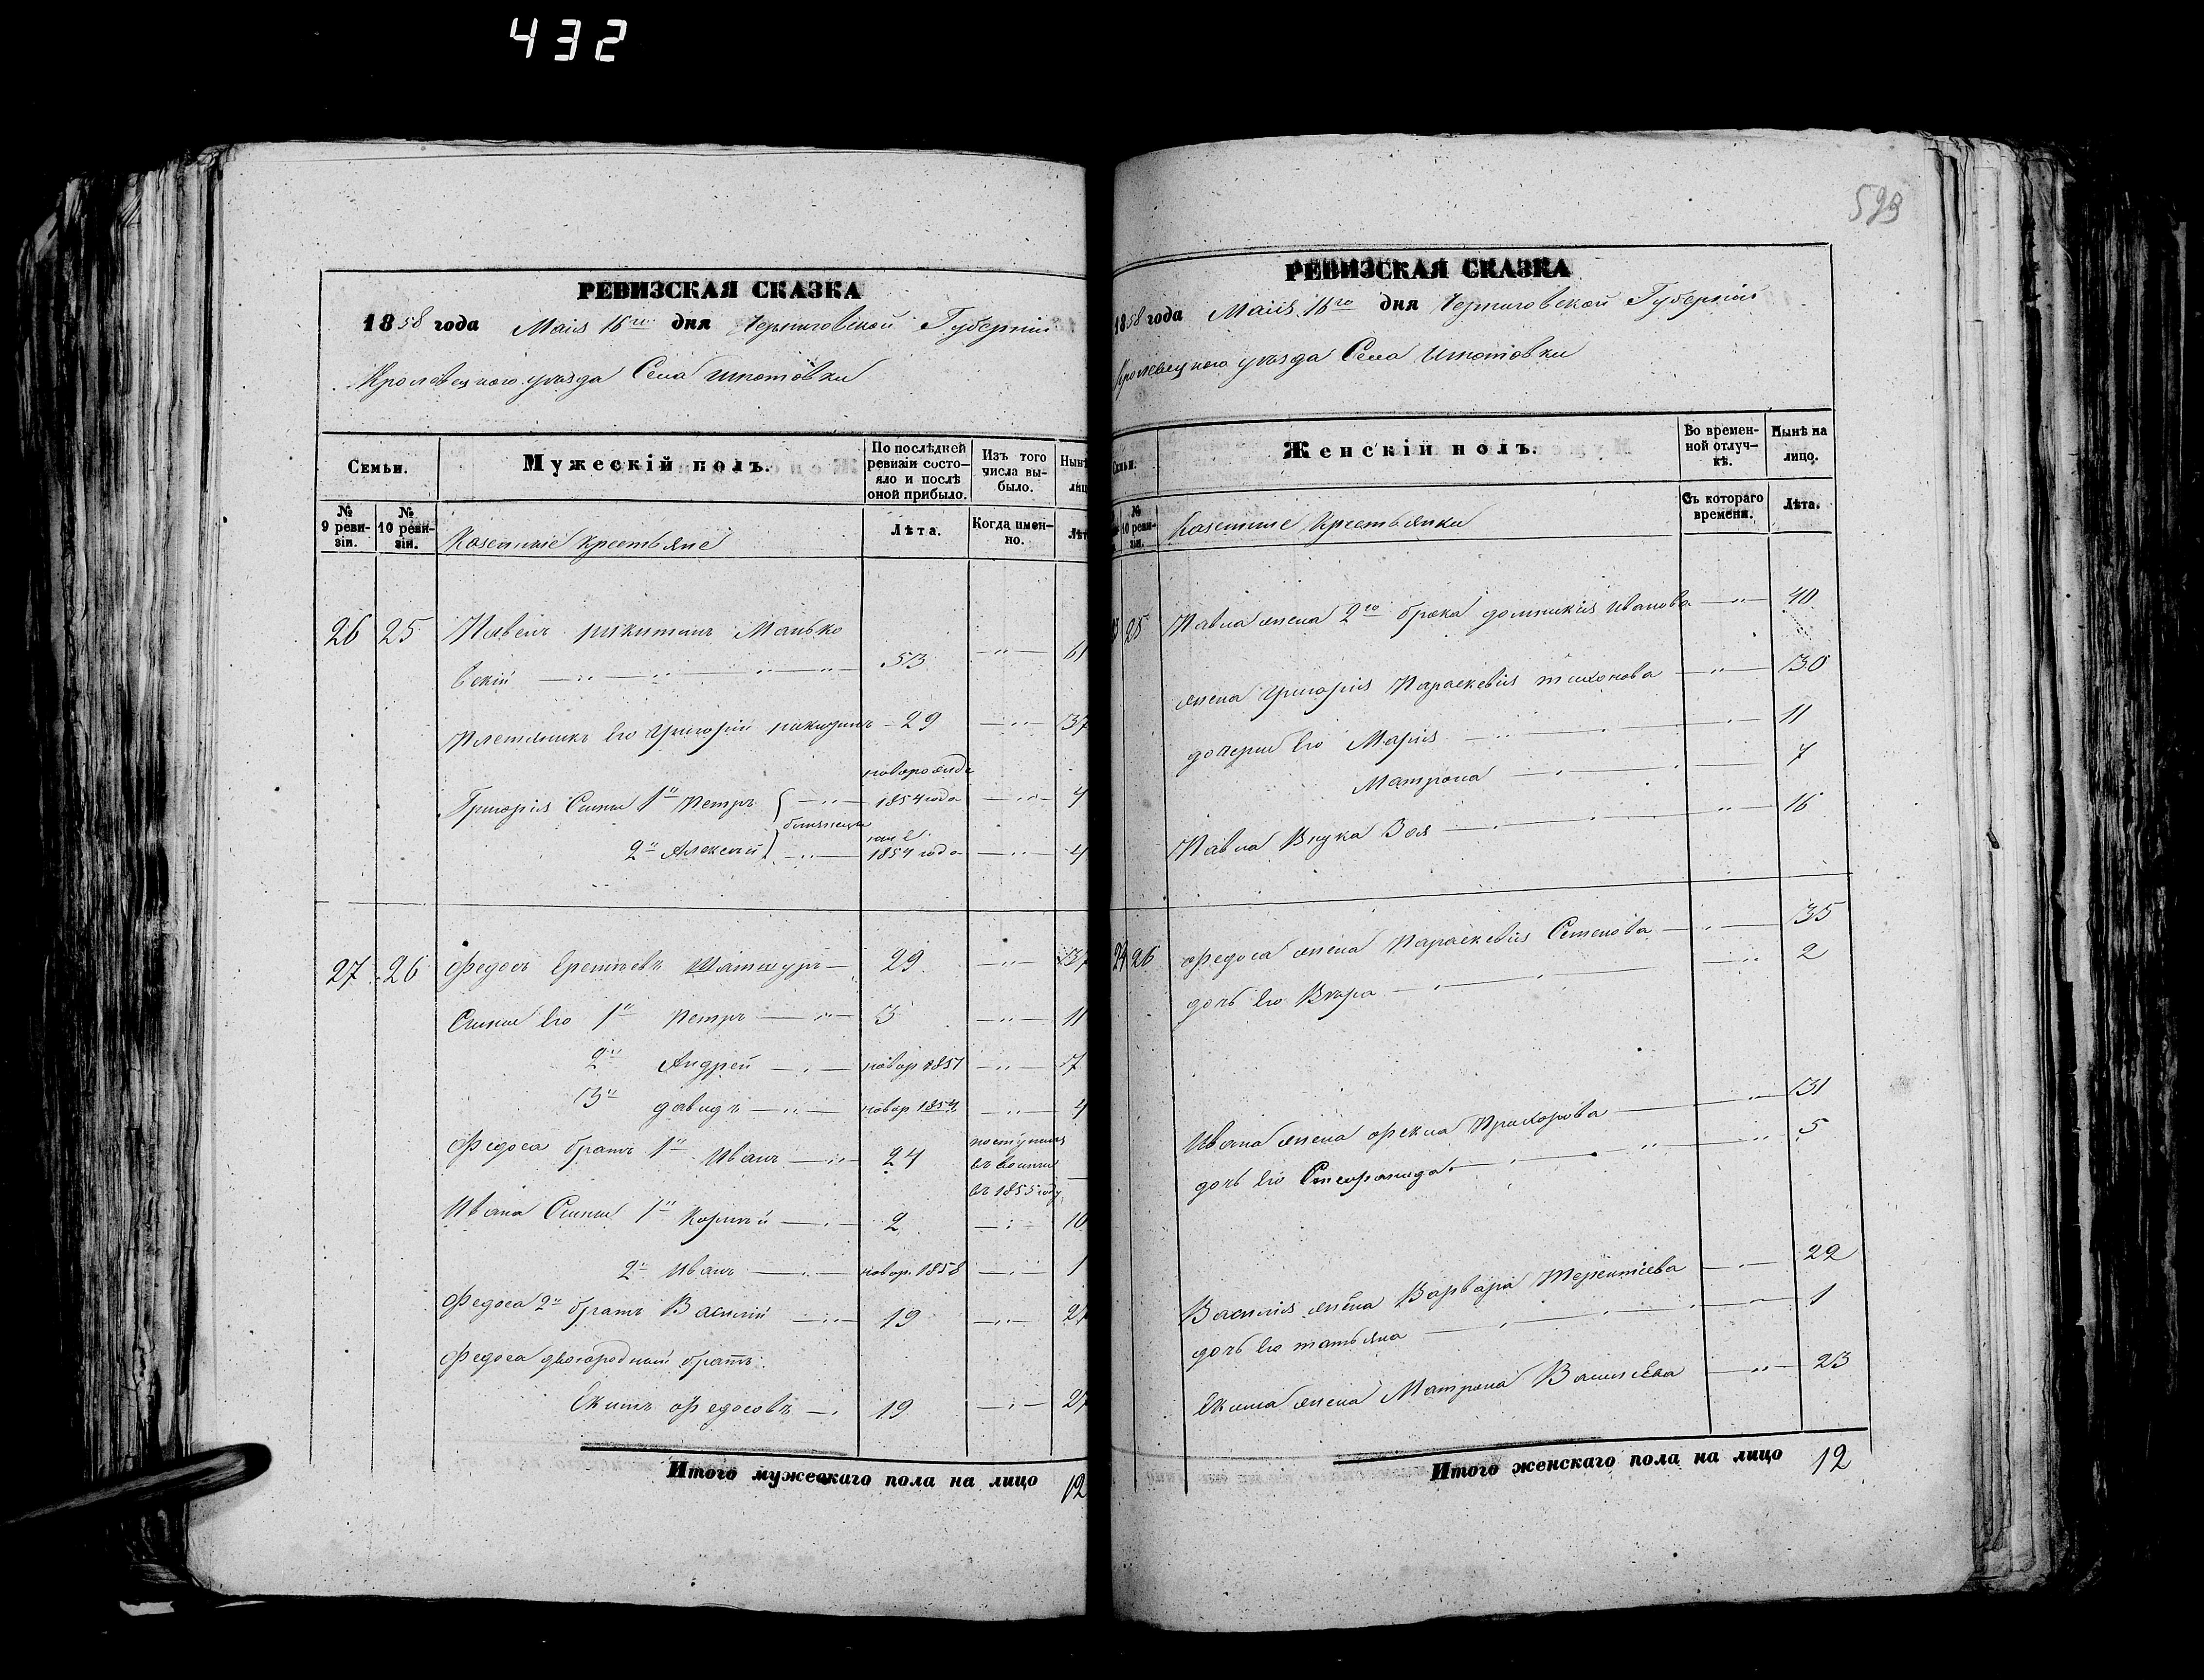 432
593
РЕВИЗСКАЯ СКАЗКА
1858 года Маія 16го дня Черниговской Губерніи
Кролевецкого уѣзда Села Ипотовки
Семьи.
Мужескій полъ.
По послѣдней ревизіи состояло и послѣ оной прибыло.
Изъ того числа выбыло.
Нынѣ лиц
№ 9 ревизіи.
№ 10 ревизіи.
Казенные крестьяне
Лѣта.
Когда именно.
Лѣт
26 25 Павелъ Никитинъ Манько
вскій 53 61
Племяникъ его Григорій Никитинъ 29 37
Григорія Сыны 1й Петръ новорожде 1854 года 4
близнецы
2й Алексѣй 1854 года 4
27 26 Федосъ Еремѣевъ 29 37
Сыны его 1й Петръ 3 11
2й Андрей новор 1851 7
3й Давидъ новор 1854 4
Федоса братъ 1й Иванъ 24 поступилъ
въ 1855 году
Ивана Сыны 1й Корнѣй 2 10
2й Иванъ новор. 1858 1
Федоса 2й братъ Василій 19 27
Федоса двоюродный братъ
Екимъ Федосовъ 19 27
Итого мужескаго пола на лицо 12
РЕВИЗСКАЯ СКАЗКА
1858 года Маія 16го дня Черниговской Губерніи
Кролевецкого уѣзда Села Ипотовки
Семьи.
Женскій полъ.
Во временной отлучкѣ.
Нынѣ на лицо.
№ 10 ревизіи.
Казенные Крестьянки
Съ котораго времени.
Лѣта.
25 Павла жена 2го брака Домникія Иванова 40
жена Григорія Параскевія Тихонова 30
дочери его Марія 11
Матрона 7
Павла Внука Зоя 16
26 Федоса жена Параскевія Семенова 35
дочь его Вѣра 2
Ивана жена Фекла Прохорова 31
дочь его Стефанида 5
Василія жена Варвара Терентіева 22
дочь его Татьяна 1
Екима жена Матрона Васильева 23
Итого женскаго пола на лицо 12